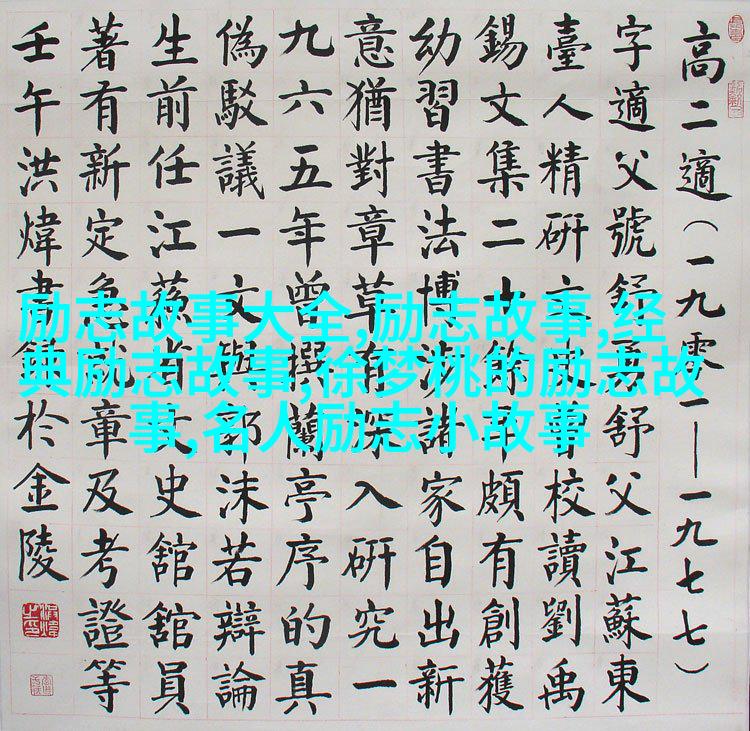 高二適（一九零一—一九七七）
字適父號舒舒父江蘇東
臺人精研文史校讀劉禹
錫文集二十餘年頗有創獲
幼習書法博涉諸家自出新
意猶對章草有深入研究一
九六五年曾撰蘭亭序的真
偽駁議一文與郭沫若辯論
生前任江蘇省文史館館員
著有新定急就章及考證等
壬午洪煒書錄於金陵
励志故事大全,励志故事,经
典励志故事,徐梦桃的励志故
事,名人励志小故事